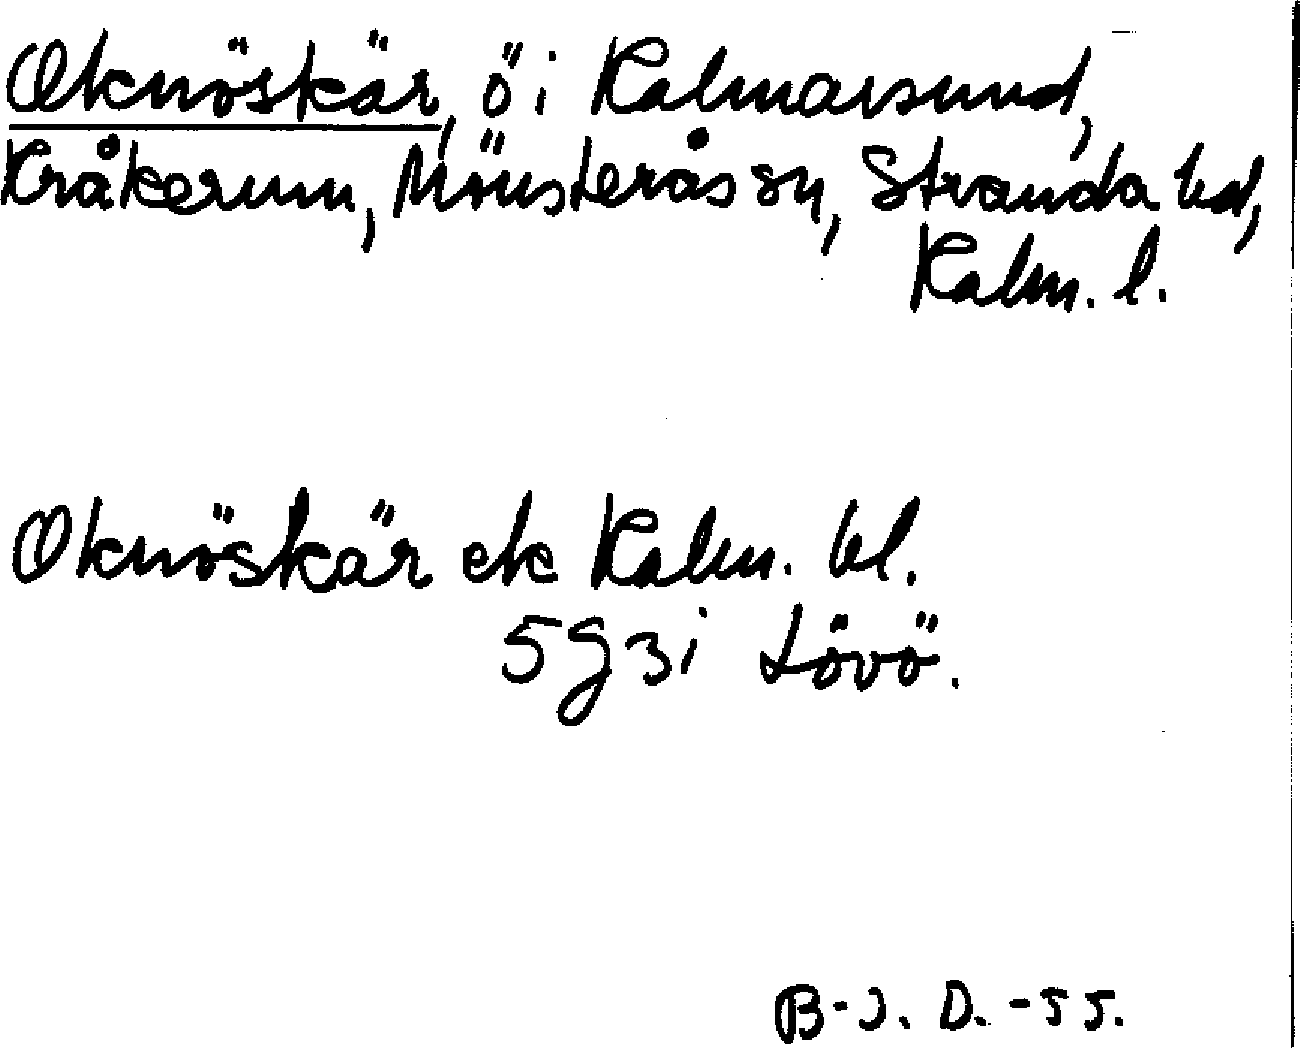 Oknöskär, ö i Kalmarsund,
Kråkerum, Mönsterås sn, Stranda hd,
Kalm. l.
Oknöskär ek Kalm. bl.
5g3i Lövö.
B-J. D. -55.